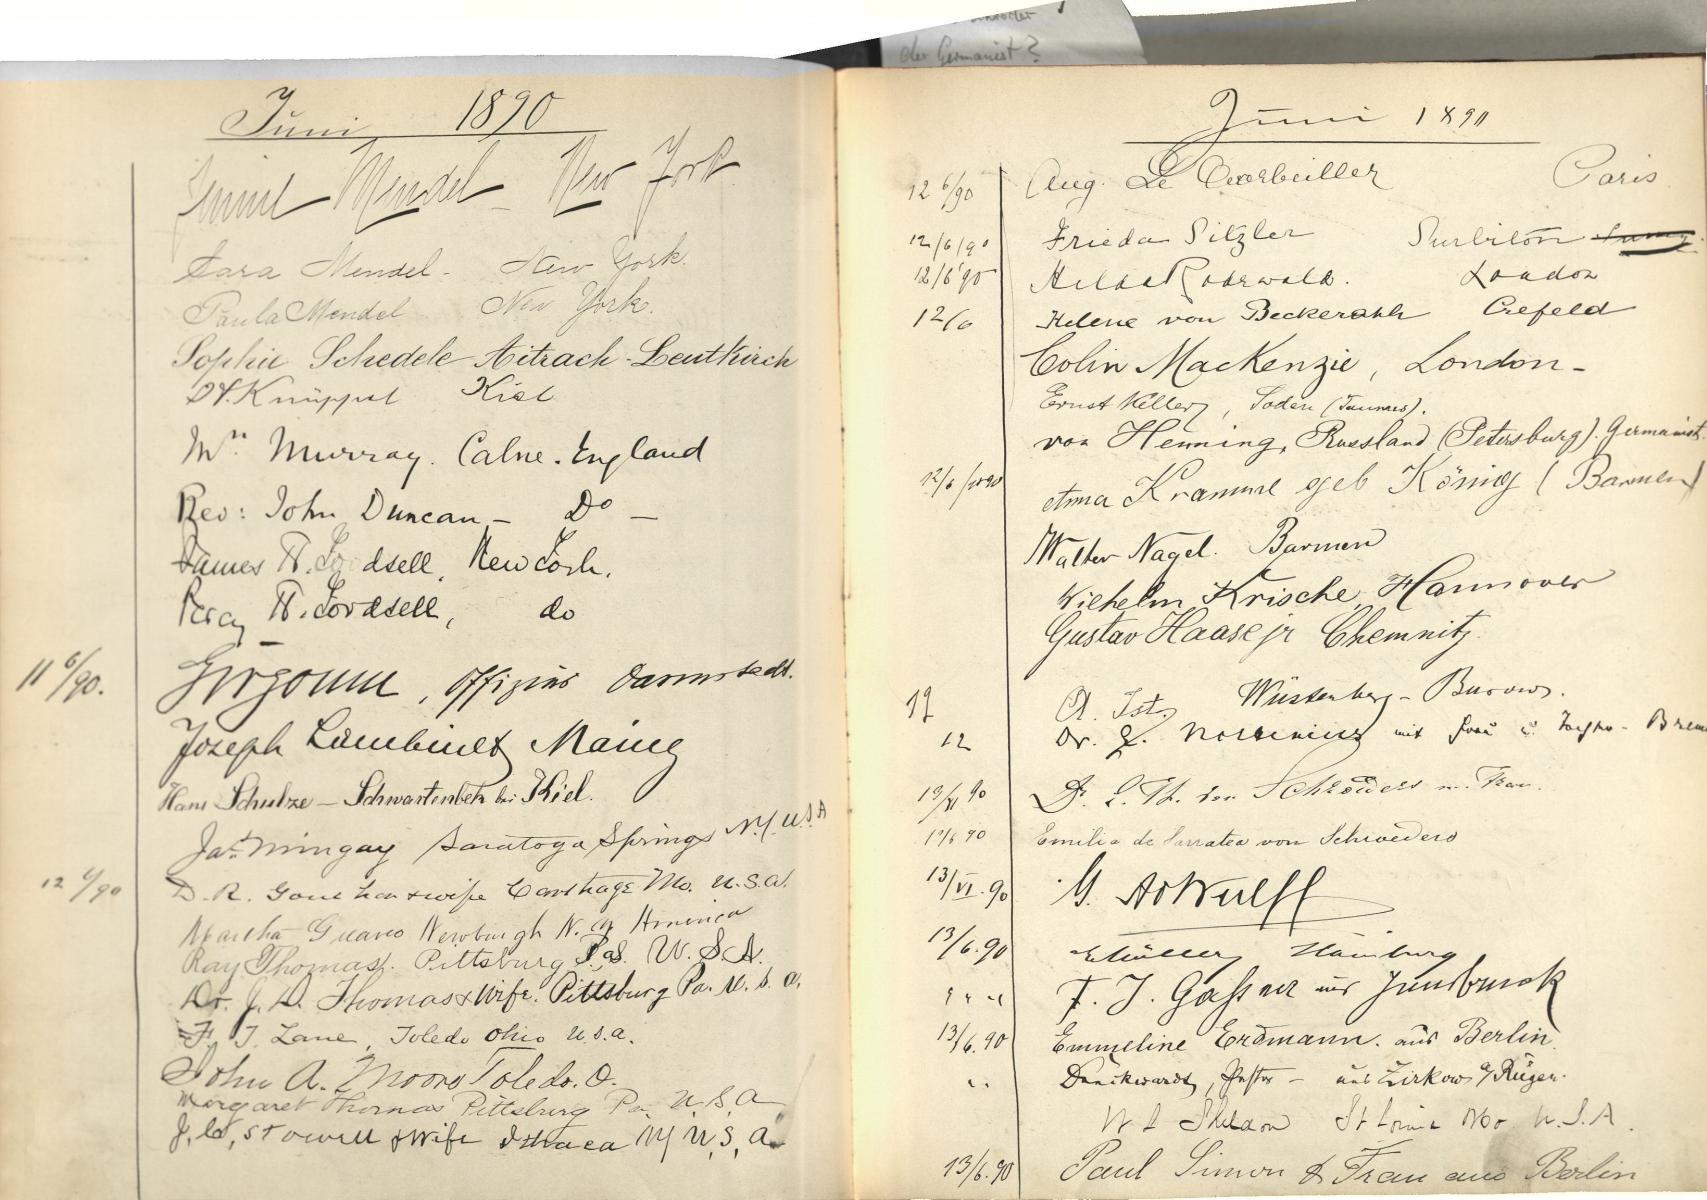 der Germanist?
Juni 1890
Mendel New York
Sara Mendel - New York.
Paula Mendel New York.
Sophie Schedele Aitrach-Leutkirch
Knüppel Kiel
Mrs. Murray. Calne. England
Rev: John Duncan, - Do -
James H. Gordsell, New York.
Percy H. Gordsell, do
11 6/90. Offizier Darmstadt.
Joseph Mainz
Hans Schulze - Schwartenbek bei Kiel.
Jas. Mingay Saratoga Springs N.Y. U.S.A
12 6/90 D. R. & wife Carthage Mo. U.S.A.
Martha Graves Newburgh N. Y. America
Ray Thomas. Pittsburg Pa. U. S. A.
Dr. J. D. Thomas & Wife. Pittsburg Pa. U. S. A.
F. J. Lane, Toledo Ohio U.S.A.
John A. Moore Toledo. O.
Margaret Thomas Pittsburg Pa. U. S. A
Stowell & Wife Ithaca N Y U, S, A.
Juni 1890
12 6/90 Aug. Le Corbeiller Paris
12/6/90 Frieda Sitzler Surbiton
12/6 90 Hilda Rodewald. London
12/6 Helene von Beckerath Crefeld
Colin MacKenzie, London -
Ernst Soden (Taunus).
von Henning, Russland (Petersburg). Germanist.
12/6 Anna Kramme geb König (Barmen)
Walter Nagel. Barmen
Wilhelm Krische, Hannover
Gustav Haase jr Chemnitz.
Wüstenberg - Bussow.
12 Dr. mit Frau
Dr. L. Th. von Schröders m. Frau.
Emilia de Sarratea von Schroeders
13/VI. 90 G. AdWulff
13/6. 90 Hamburg
" " " F. J. Gassner aus Innsbruck
13/6. 90 Emmeline Erdmann. aus Berlin.
" Danckwardt, Pastor - aus Zirkow a/Rügen.
W L Sheldon St Louis Mo. U.S.A.
13/6. 90 Paul Simon & Frau aus Berlin